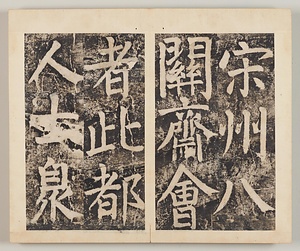 宋州八
關齋會
者此都
人士衆